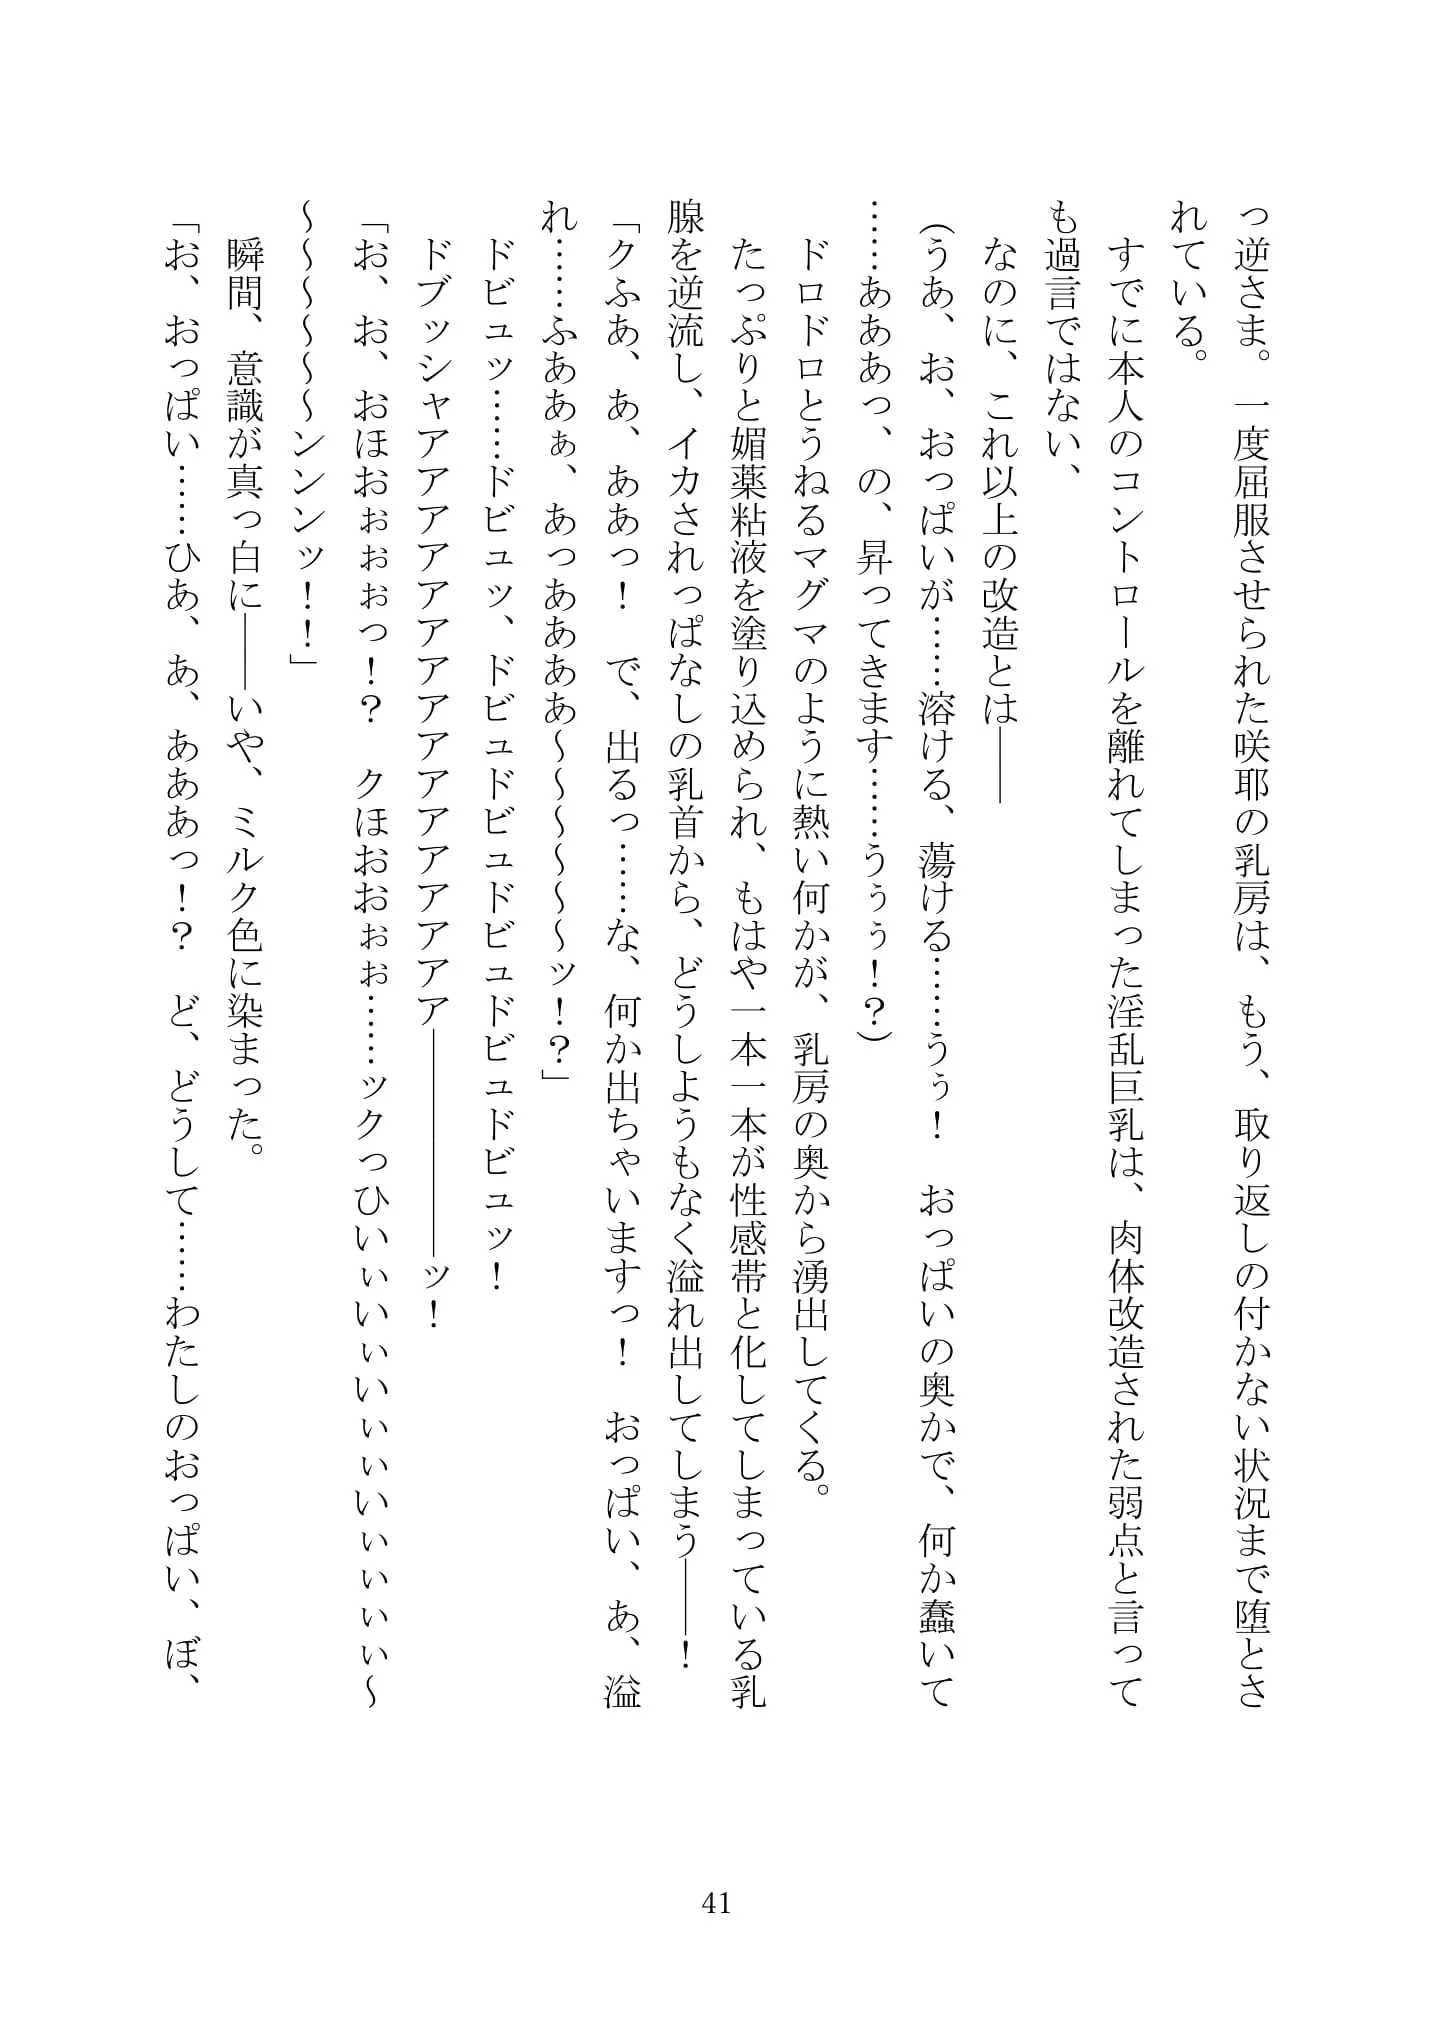 っ逆さま。一度屈服させられた咲耶の乳房は、もう、取り返しの付かない状況まで堕とさ
れている。
すでに本人のコントロールを離れてしまった淫乱巨乳は、肉体改造された弱点と言って
も過言ではない、
なのに、これ以上の改造とは――
(うあ、お、おっぱいが……溶ける、蕩ける……うぅ！　おっぱいの奥かで、何か蠢いて
……あああっ、の、昇ってきます……うぅぅ！？)
ドロドロとうねるマグマのように熱い何かが、乳房の奥から湧出してくる。
たっぷりと媚薬粘液を塗り込められ、もはや一本一本が性感帯と化してしまっている乳
腺を逆流し、イカされっぱなしの乳首から、どうしようもなく溢れ出してしまう――！
「クふあ、あ、ああっ！　で、出るっ……な、何か出ちゃいますっ！　おっぱい、あ、溢
れ……ふああぁ、あっあああぁ～～～～～～ッ！？」
ドビュッ……ドビュッ、ドビュドビュドビュドビュドビュッ！
ドブッシャアアアアアアアアアアアアアアアア――――――ッ！
「お、お、おほおぉぉぉっ！？　クほおおぉぉ……ックっひいぃいぃいぃぃいぃぃぃぃ～
～～～～～～ンンンッ！！」
瞬間、意識が真っ白に――いや、ミルク色に染まった。
「お、おっぱい……ひあ、あ、あああっ！？　ど、どうして……わたしのおっぱい、ぼ、
41